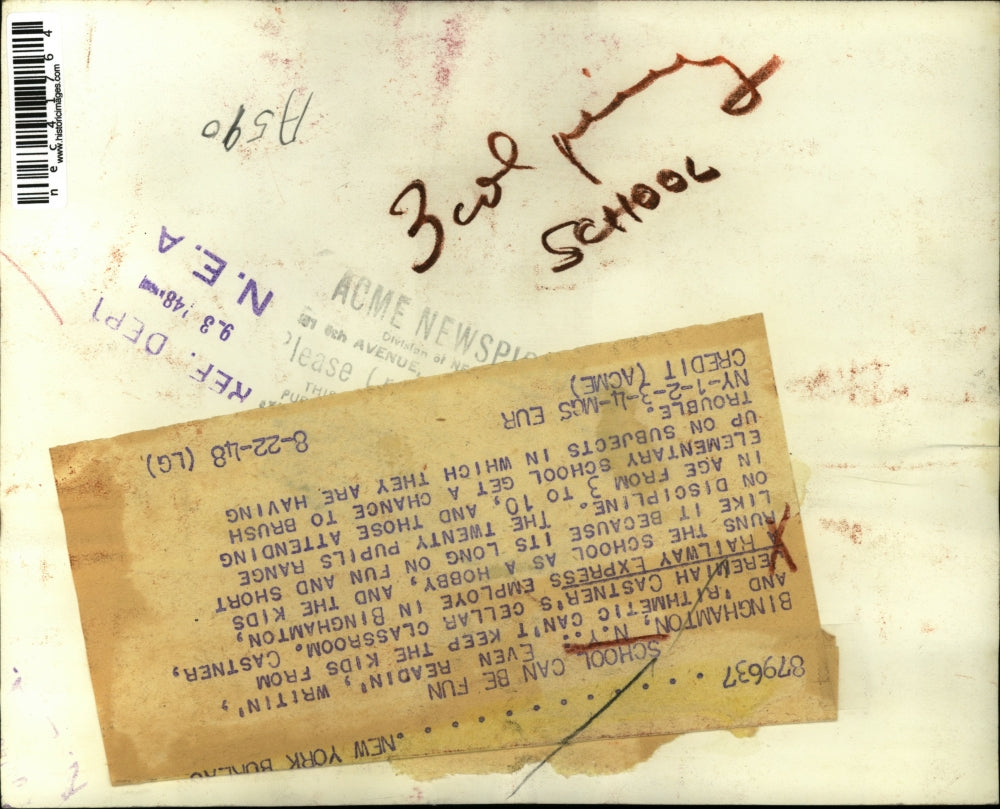 nec41764
www.historicimages.com
A590
3 col
SCHOOL
N.E.A
9.3 '48
REF. DEPT
ACME NEWSPIC
Division of NE
6th AVENUE,
Please
THI
PU
879637 . . . . . . . . . . . . NEW YORK
SCHOOL CAN BE FUN
BINGHAMTON, N.Y.: EVEN READIN', WRITIN',
AND 'RITHMETIC CAN'T KEEP THE KIDS FROM
EREMIAH CASTNER'S CELLAR CLASSROOM. CASTNER,
RAILWAY EXPRESS EMPLOYE IN BINGHAMTON,
RUNS THE SCHOOL AS A HOBBY, AND THE KIDS
LIKE IT BECAUSE ITS LONG ON FUN AND SHORT
ON DISCIPLINE. THE TWENTY PUPILS RANGE
IN AGE FROM 3 TO 10, AND THOSE ATTENDING
ELEMENTARY SCHOOL GET A CHANCE TO BRUSH
UP ON SUBJECTS IN WHICH THEY ARE HAVING
TROUBLE.
NY-1-2-3-4-MGS EUR
CREDIT (ACME) 8-22-48 (LG)